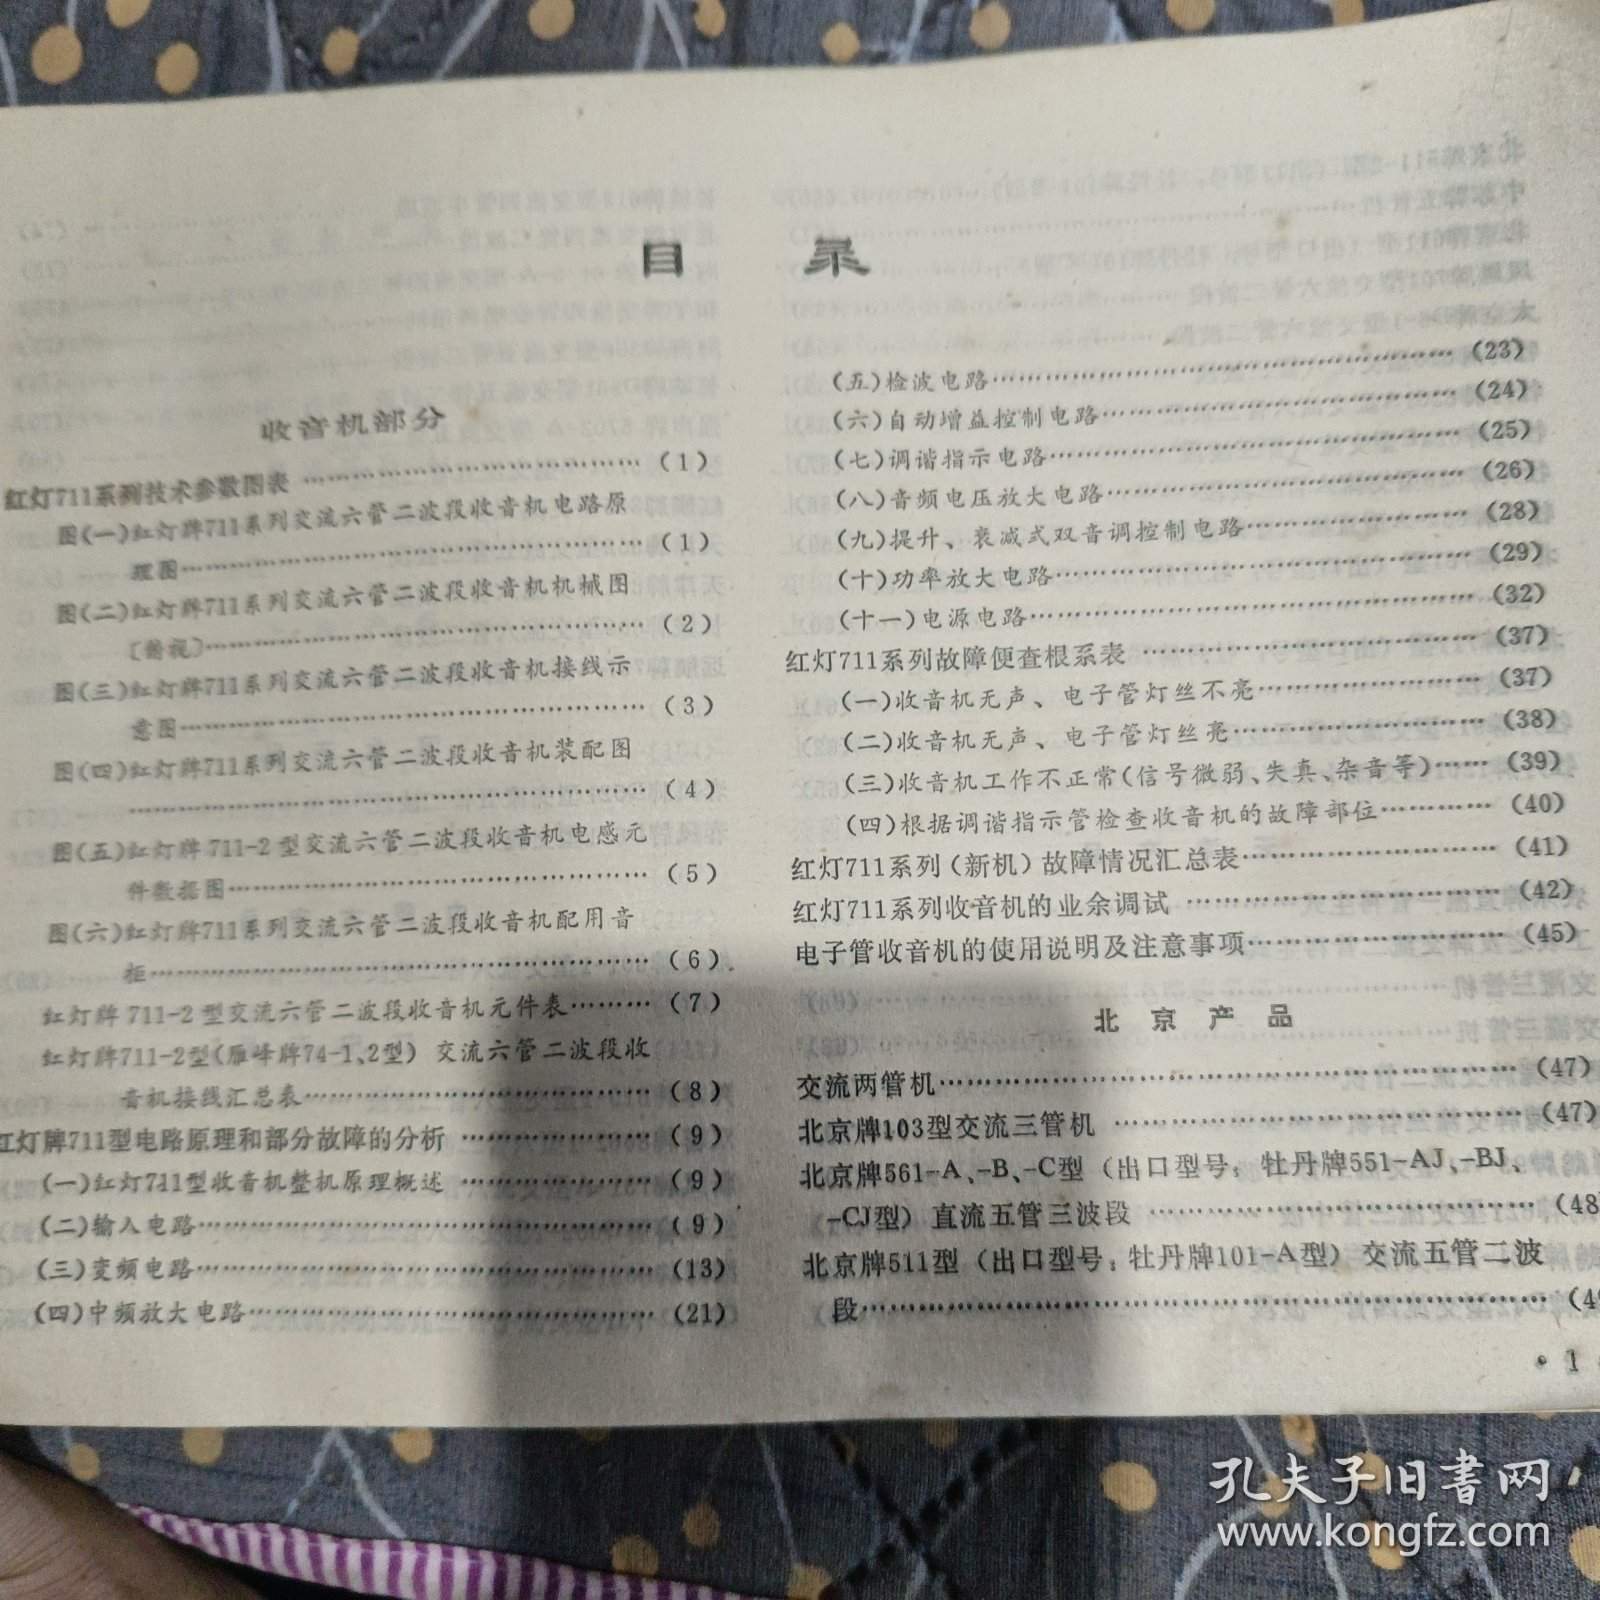 目 录
收音机部分
红灯711系列技术参数图表 ……………………………… (1)
图(一)红灯牌711系列交流六管二波段收音机电路原
理图…………………………………………… (1)
图(二)红灯牌711系列交流六管二波段收音机机械图
〔俯视〕………………………………………… (2)
图(三)红灯牌711系列交流六管二波段收音机接线示
意图…………………………………………… (3)
图(四)红灯牌711系列交流六管二波段收音机装配图
………………………………………………… (4)
图(五)红灯牌 711-2 型交流六管二波段收音机电感元
件数据图……………………………………… (5)
图(六)红灯牌711系列交流六管二波段收音机配用音
柜……………………………………………… (6)
红灯牌 711-2 型交流六管二波段收音机元件表……… (7)
红灯牌711-2型(雁峰牌74-1、2型) 交流六管二波段收
音机接线汇总表……………………………… (8)
红灯牌711型电路原理和部分故障的分析 ………………… (9)
(一)红灯711型收音机整机原理概述 ………………… (9)
(二)输入电路………………………………………… (9)
(三)变频电路………………………………………… (13)
(四)中频放大电路…………………………………… (21)
(五)检波电路………………………………………… (23)
(六)自动增益控制电路……………………………… (24)
(七)调谐指示电路…………………………………… (25)
(八)音频电压放大电路……………………………… (26)
(九)提升、衰减式双音调控制电路………………… (28)
(十)功率放大电路…………………………………… (29)
(十一)电源电路……………………………………… (32)
红灯711系列故障便查根系表 ……………………………… (37)
(一)收音机无声、电子管灯丝不亮………………… (37)
(二)收音机无声、电子管灯丝亮…………………… (38)
(三)收音机工作不正常(信号微弱、失真、杂音等)…… (39)
(四)根据调谐指示管检查收音机的故障部位………… (40)
红灯711系列(新机)故障情况汇总表……………………… (41)
红灯711系列收音机的业余调试 …………………………… (42)
电子管收音机的使用说明及注意事项……………………… (45)
北 京 产 品
交流两管机………………………………………………… (47)
北京牌103型交流三管机 ………………………………… (47)
北京牌561-A、-B、-C型 (出口型号: 牡丹牌551-AJ、-BJ、
-CJ型) 直流五管三波段 ……………………………… (48)
北京牌511型 (出口型号: 牡丹牌101-A型) 交流五管二波
段…………………………………………………………
· 1
孔夫子旧书网
www.kongfz.com